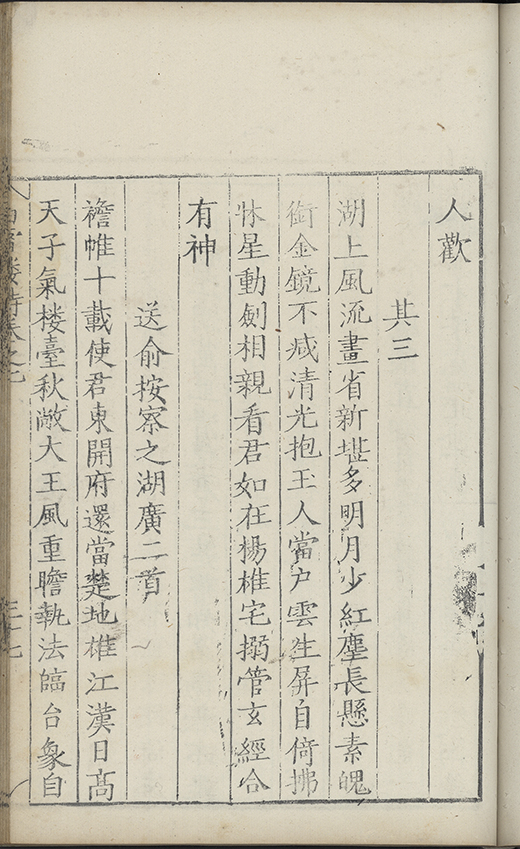 人歡
其三
湖上風流畫省新堪多明月少紅塵長懸素魄
銜金鏡不减清光抱玉人當户雲生屏自倚拂
牀星動劍相親看君如在揚雄宅搦管玄經合
有神
送俞按察之湖廣二首
襜帷十載使君東開府還當楚地雄江漢日高
天子氣楼臺秋敞大王風重瞻執法臨台象自